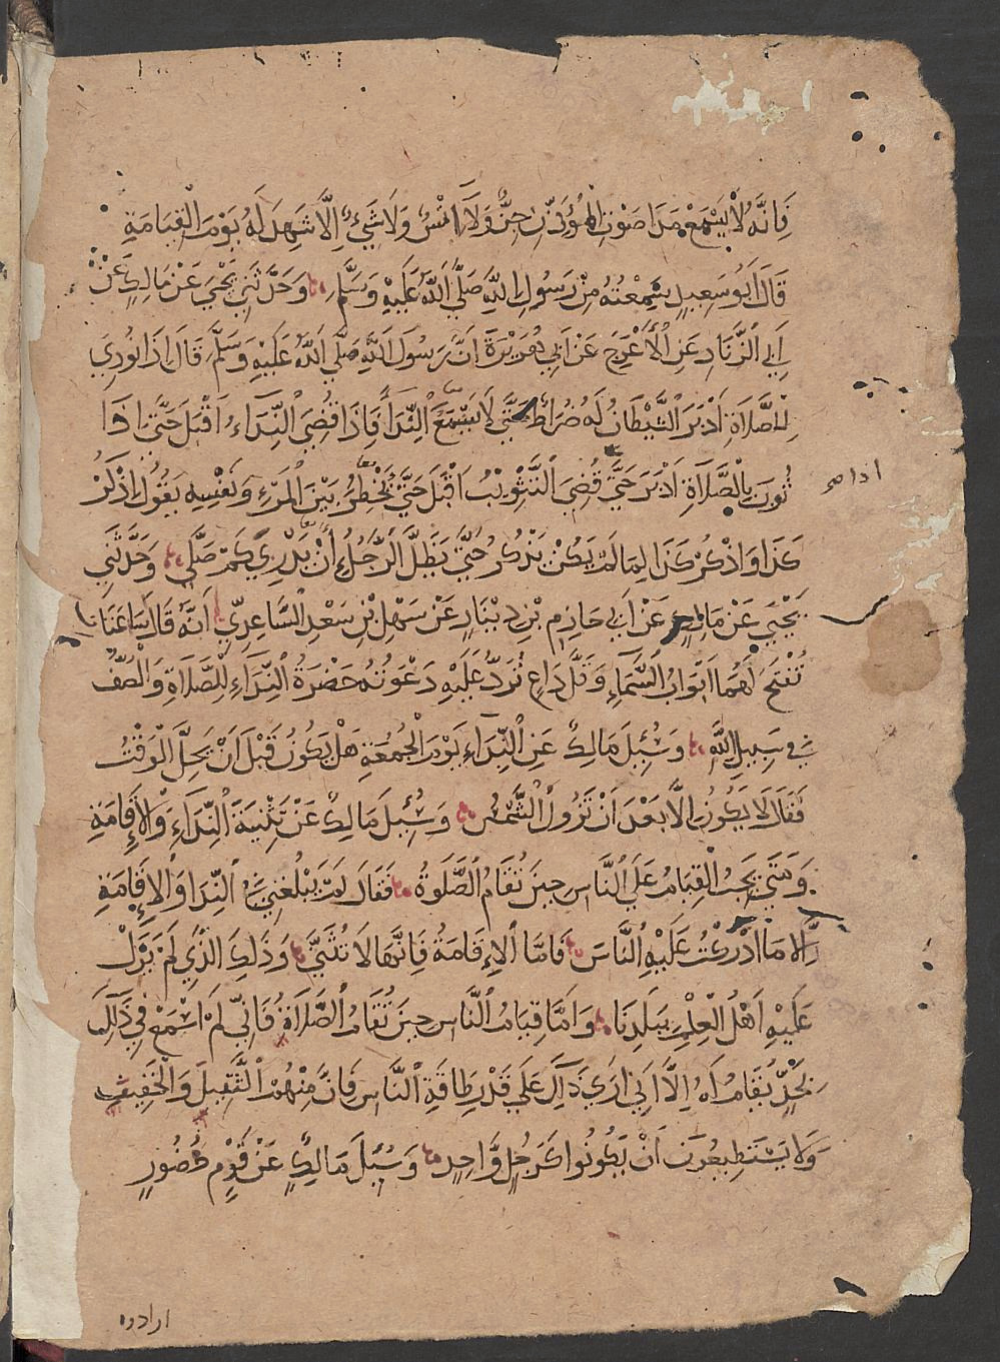 فَاِنَّهُ لَا يَسْمَعُ مَدَا صَوْتِ الْمُؤَذِّنِ جِنٌّ وَلَا اِنْسٌ وَلَا شَيْءٌ اِلَّا شَهِدَ لَهُ يَوْمَ الْقِيَامَةِ
قَالَ اَبُو سَعِيدٍ سَمِعْتُهُ مِنْ رَسُولِ اللهِ صَلَّي اللهُ عَلَيْهِ وَسَلَّمَ وَحَدَّثَنِي يَحْيَي عَنْ مَالِكٍ عَنْ
اَبِي الزِّنَادِ عَنِ الْأَعْرَجِ عَنْ اَبِي هُرَيْرَةَ اَنَّ رَسُولَ اللهِ صَلَّي اللهُ عَلَيْهِ وَسَلَّمَ قَالَ اِذَا نُودِيَ
لِلصَّلَاةِ اَدْبَرَ الشَّيْطَانُ لَهُ ضُرَاطٌ حَتَّي لَا يَسْمَعَ النِّدَآءَ فَاِذَا قُضِيَ النِّدَآءُ اَقْبَلَ حَتَّي اِذَا
ثُوِّبَ بِالصَّلَاةِ اَدْبَرَ حَتَّي قُضِيَ التَّثْوِيبُ اَقْبَلَ حَتَّي يَخْطِرَ بَيْنَ الْمَرْءِ وَنَفْسِهِ يَقُولُ اذْكُرْ
كَذَا وَاذْكُرْ كَذَا لِمَا لَمْ يَكُنْ يَذْكُرُ حَتَّي يَظَلَّ الرَّجُلُ اِنْ يَدْرِي كَمْ صَلَّي وَحَدَّثَنِي
يَحْيَي عَنْ مَالِكٍ عَنْ اَبِي حَازِمِ بْنِ دِينَارٍ عَنْ سَهْلِ بْنِ سَعْدٍ السَّاعِدِيِّ اَنَّهُ قَالَ سَاعَتَانِ
تُفْتَحُ لَهُمَا اَبْوَابُ السَّمَآءِ وَقَلَّ دَاعٍ تُرَدُّ عَلَيْهِ دَعْوَتُهُ حَضْرَةُ النِّدَآءِ لِلصَّلَاةِ وَالصَّفُّ
فِي سَبِيلِ اللهِ وَسُئِلَ مَالِكٌ عَنِ النِّدَآءِ يَوْمَ الْجُمُعَةِ هَلْ يَكُونُ قَبْلَ اَنْ يَحِلَّ الْوَقْتُ
فَقَالَ لَا يَكُونُ اِلَّا بَعْدَ اَنْ تَزُولَ الشَّمْسُ وَسُئِلَ مَالِكٌ عَنْ تَثْنِيَةِ النِّدَآءِ وَالْاِقَامَةِ
وَمَتَي يَجِبُ الْقِيَامُ عَلَي النَّاسِ حِينَ تُقَامُ الصَّلَوةُ فَقَالَ لَمْ يَبْلُغْنِي فِي النِّدَا وَالْاِقَامَةِ
اِلَّا مَا اَدْرَكْتُ عَلَيْهِ النَّاسَ فَامَّا الْاِقَامَةُ فَاِنَّهَا لَا تُثَنَّي وَذَلِكَ الَّذِي لَمْ يَزَلْ
عَلَيْهِ اَهْلُ الْعِلْمِ بِبَلَدِنَا وَاَمَّا قِيَامُ النَّاسِ حِينَ تُقَامُ الصَّلَاةُ فَاِنِّي لَمْ اَسْمَعْ فِي ذَلِكَ
بِحَدٍّ يُقَامُ لَهُ اِلَّا اَنِّي اَرَي ذَلِكَ عَلَي قَدْرِ طَاقَةِ النَّاسِ فَاِنَّ مِنْهُمُ الثَّقِيلَ وَالْخَفِيفَ
وَلَا يَسْتَطِيعُونَ اَنْ يَكُونُوا كَرَجُلٍ وَّاحِدٍ وَسُئِلَ مَالِكٌ عَنْ قَوْمٍ حُضُورٍ
ارادوا